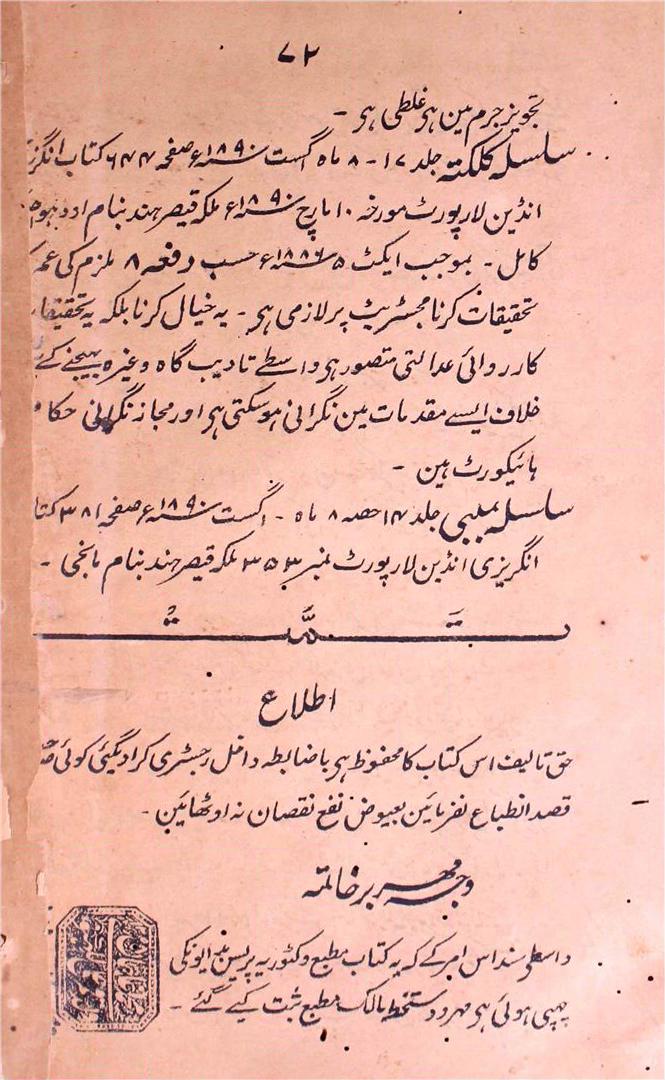 ۷۲
تجویز جرم مین ہر غلطی ہی -
سلسلہ کلکتہ جلد ۱۷ - ۸ ماہ اگست سنہ ۱۸۹۰ء صفحہ ۶۴۴ کتاب
انڈین لا رپورٹ مورخہ ۱۰ مارچ سنہ ۱۸۹۰ء ملکہ قیصر ہند بنام
کامل - بموجب ایکٹ ۵ سنہ ۱۸۸۶ء حسب دفعہ ۸ ملزم کی
تحقیقات کرنا مجسٹریٹ پر لازمی ہی - یہ خیال کرنا بلکہ یہ
کارروائی عدالتی متصور ہی واسطے تادیب گاہ وغیرہ بھیجنے کے
خلاف ایسے مقدمات مین نگرانی ہو سکتی ہی اور مجاز نگرانی حکام
ہائیکورٹ ہین -
سلسلہ بمبئی جلد ۱۴ حصہ ۸ ماہ - اگست سنہ ۱۸۹۰ء صفحہ ۳۸۱
انگریزی انڈین لا رپورٹ نمبر ۳۵۳ ملکہ قیصر ہند بنام مانجی -
تَمَّتُ
اطلاع
حق تالیف اس کتاب کا محفوظ ہی باضابطہ داخل رجسٹری کرا دیگئی کوئی
قصد انطباع نفرمائین بعیوض نفع نقصان نہ اوٹھائین -
وجہ مہر بر خاتمہ
واسطی سند اس امر کے کہ یہ کتاب مطبع وکٹوریہ پریس
چھپی ہوئی ہی مہر و دستخط مالک مطبع ثبت کیے گئے -